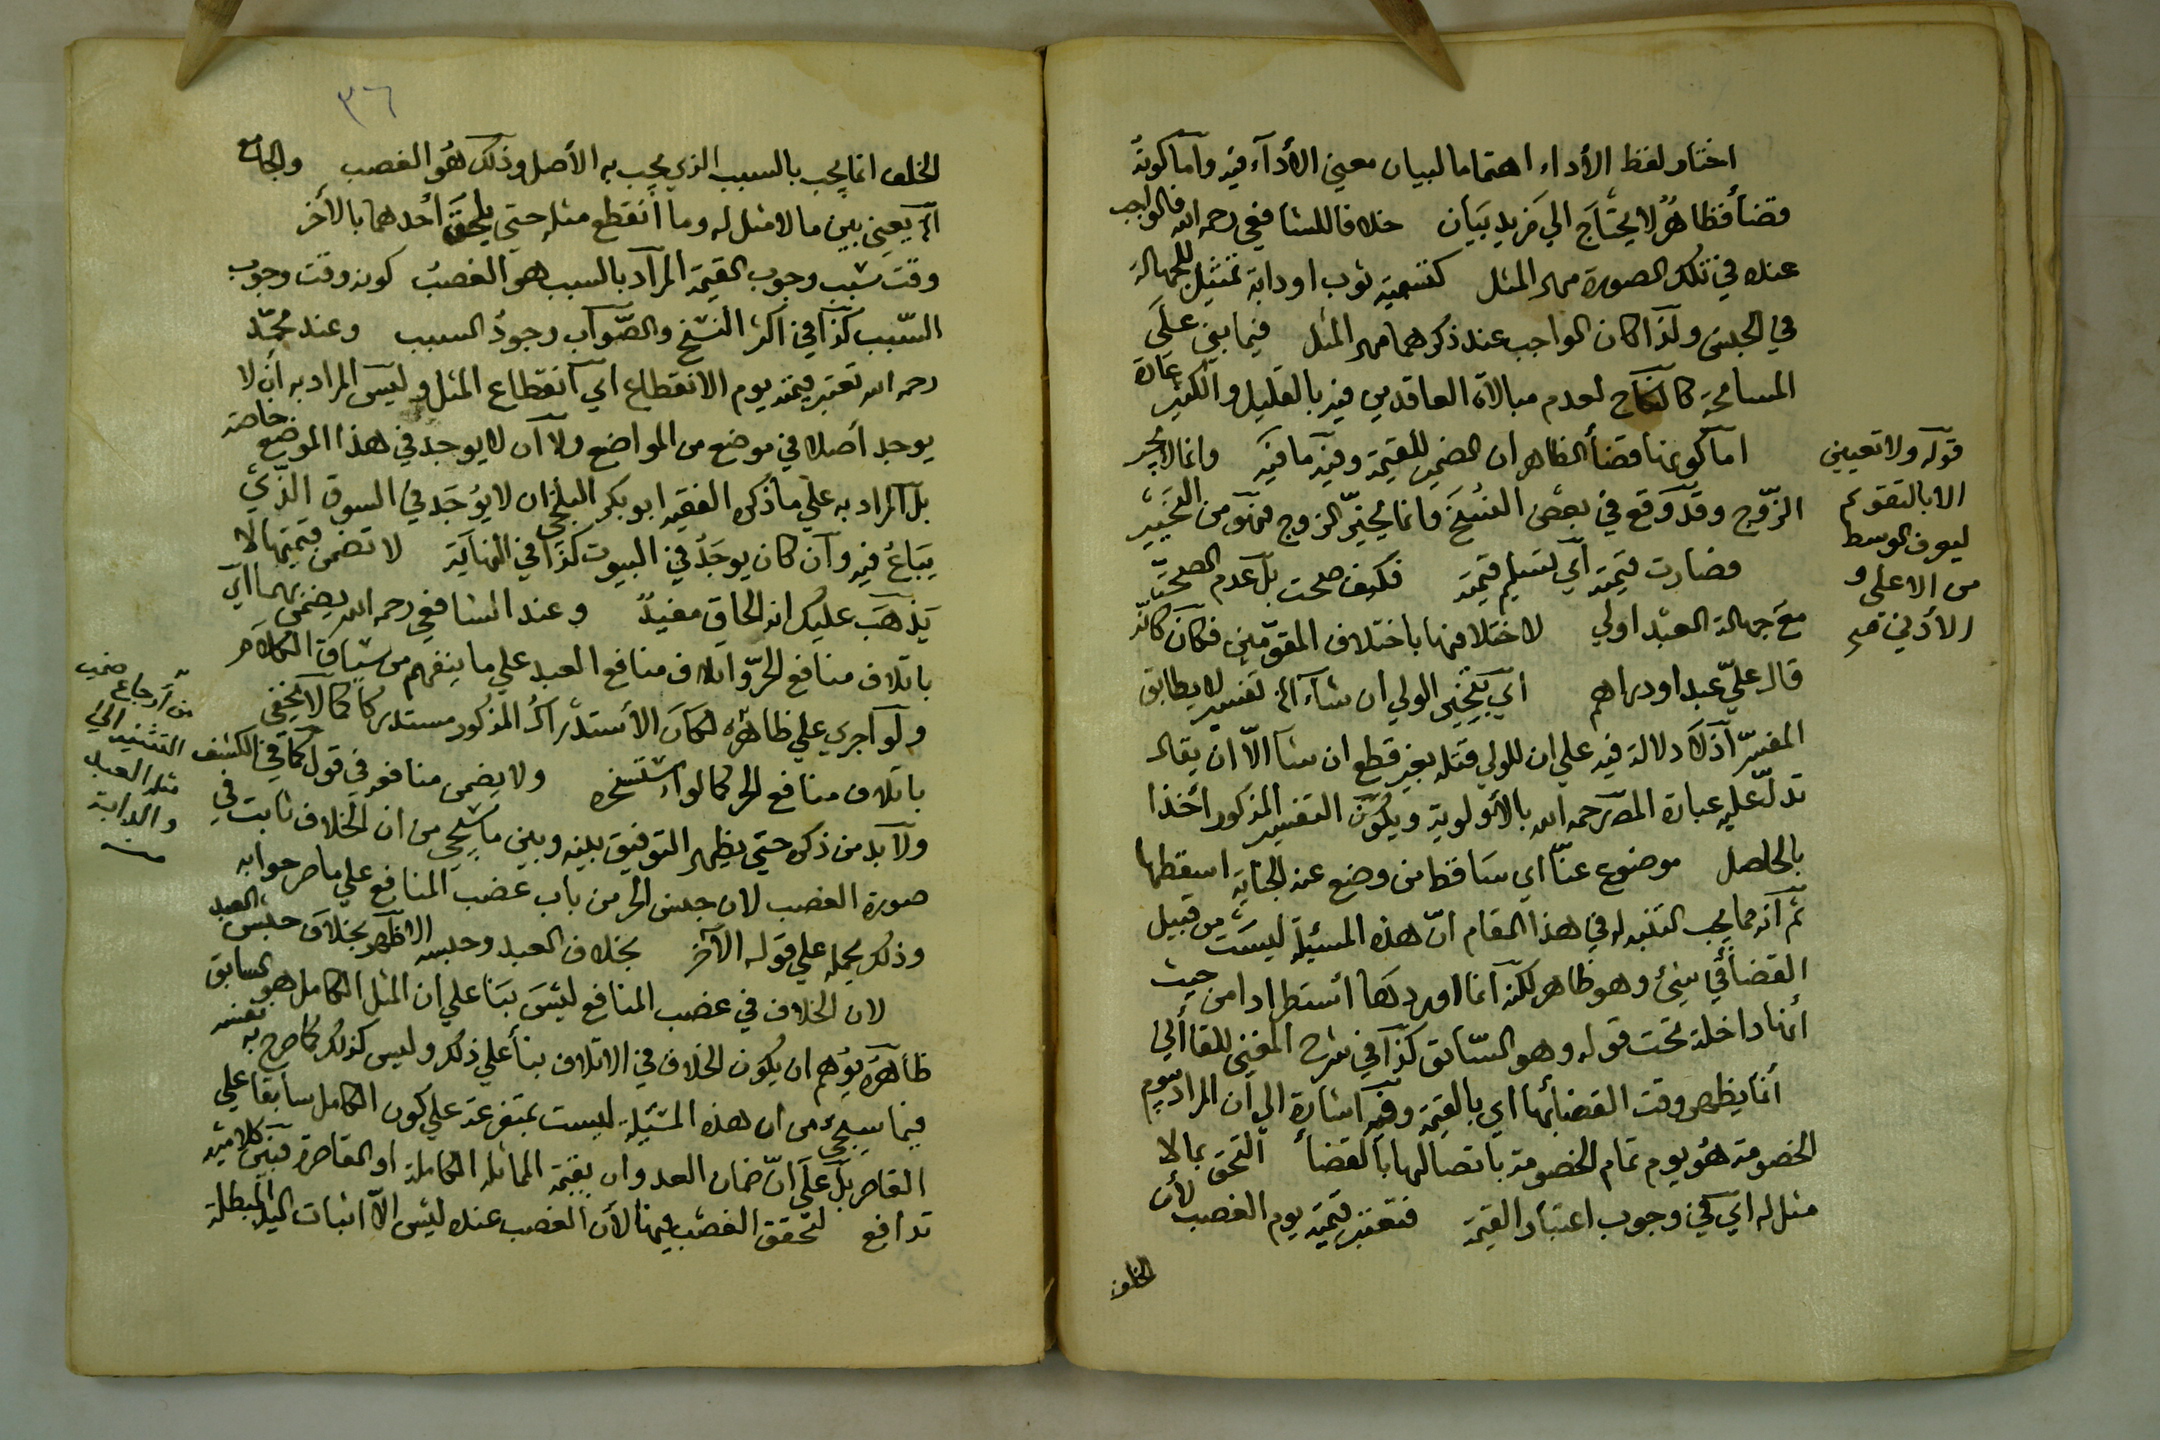 اختار لفظ الأداء اهتماما لبيان معنى الأدآء فيه وآما كونه
قضأ فظاهرٌ لا يحتاج الي مزيد بيان خلافا للشافعي رحمه الله فالواجب
عنده في تلك الصورة مهر المثل كتسمية ثوب او دابة تمثيل للجهالة
في الجنس ولذا كان الواجب عند ذكرهما مهر المثل فيما بني علَي
المسامحة كالنكاح لعدم مبالاة العاقدين فيه بالقليل والكثير عادة
اما كونها قضأ الظاهر ان الضمير للقيمة وفيه ما فيه وانما لا يجبر
الزّوج وقد وقع في بعض النسخ وانما يخيّر الزوج فهو من التخيير
فصارت قيمته آي تسليم قيمته فكيف صحت بل عدم الصحة
مع جهالة العبد اولي لاختلافها باختلاف المقوّمين فكان كانّه
قال عليّ عبد او دراهم آي يتخير الولي ان شآء آلخ تفسير لا يطابق
المفسّر آذ لا دلالة فيه علي ان للولي قتله بغير قطع ان شا الاّ ان يقال
تدلّ عليه عبارة المص رحمه الله بالأولوية ويكون التفسير المذكور أخذا
بالحاصل موضوع عنّا اي ساقط من وضع عنه الجناية اسقطها
ثم آنه مما يجب التنبه له في هذا المقام انّ هذه المسئلة ليست من قبيل
القضأ في شيئ وهو ظاهر لكنه آنما اوردها استطرادا من حيث
أنها داخلة تحت قوله وهو السّابق كذا في شرح المغني للقاألي
أنما يظهر وقت القضأ بها اي بالقيمة وفيه آشارة الي ان المراد بيوم
الخصومة هُو يوم تمام الخصومة باتصالها بالقضأ التحق بما لا
مثل له اي في وجوب اعتبار القيمة فتعتبر قيمته يوم الغصب لأن
الخلف
قوله ولا تعيين
الا بالتقويم
ليعرف الوسط
من الاعلى و
الأدني صح
٣٦
الخلف انما يجب بالسبب الذي يجب به الأصل وذلك هُو الغصب والجامع
آلخ يعني بين ما لا مثل له وما أنقطع مثله حتي يلحق أحدهما بالأخر
وقت سبب وجوب القيمة المرآد بالسبب هو الغصبُ كونه وقت وجوب
السّبب كذا في اكثر النسخ والصّواب وجودُ السبب وعند محمّد
رحمه الله تعتبر قيمته يوم الانقطاع اي آنقطاع المثل وليس المراد به أن لا
يوجد أصلا في موضع من المواضع ولا آن لا يوجد في هذا الموضع خاصة
بل المراد به علي ما ذكره الفقيه ابو بكر البلخي ان لا يُوجَد في السوق الذّي
يُبَاعُ فيه وآن كان يوجَدُ في البيوت كذا في النهاية لا تضمن قيمتها لا
يَذهَب عليك انه الحاق مفيدً وعند الشافعي رحمه الله يضمن بهما اي
باتلاف منافع الحرّ وآتلاف منافع العبد علي ما ينفهم من سياق الكلام
ولو آجري علي ظاهره لكان الأستدراكُ المذكور مستدركًا كما لا يخفي
باتلاف منافع الحر كما لو استسخره ولا يضمن منافعه في قول كما في الكشف
ولا بد من ذكره حتي يظهر التوفيق بينه وبين ما سيجي من ان الخلاف ثابت في
صورة الغصب لان حبس الحر من باب غصب المنافع علي ما صرحوا به
وذلك يحمله علي قوله الآخر بخلاف العبد وحبسه الاظهر بخلاف حبس العبد
لان الخلاف في غصب المنافع ليسَ بنا علي ان المثل الكامل هو السابق
ظاهره يوهم ان يكون الخلاف في الاتلاف بنأ علي ذلك وليس كذلك كما صرح به نفسه
فيما سيجئ من ان هذه المسئلة ليست بمتفرعة علي كون الكامل سابقا علي
القاصر بل علَي انّ ضمان العدوان بقيمة المماثلة الكاملة او القاصرة فبين كلاميه
تدافع لتحقق الغصب فيها لأن الغصب عنده ليس الاّ اثبات اليد المبطلة
من أرجاع ضمير
التثنية الي
مثل العبد
والدابة